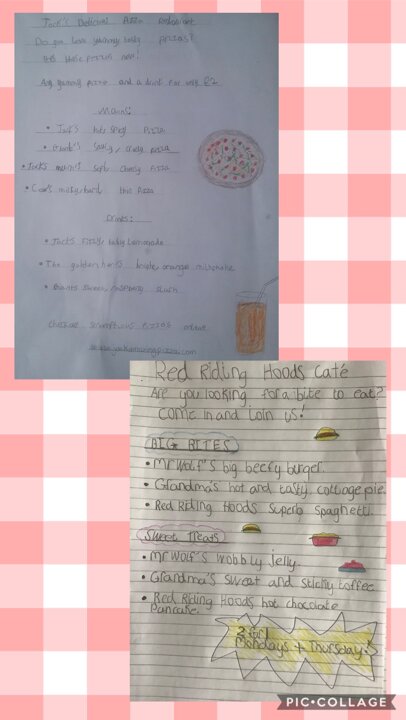 Jack's Delicious Pizza Restaurant
Do you love yummy tasty pizzas?
these pizzas now!
Any yummy pizza and a drink for only £2
Mains:
• Jack's hot spicy pizza
• Giant's cheesy pizza
• Jack's mum's soft cheesy pizza
• Cow's milky hard thin pizza
Drinks:
• Jack's fizzy tasty lemonade
• The golden hen's orange milkshake
• Giants sweet raspberry slush
scrumptious pizzas online
Red Riding Hoods Café
Are you looking for a bite to eat?
Come in and Join us!
BIG BITES
• Mr Wolf's big beefy burger.
• Grandma's hot and tasty cottage pie.
• Red Riding Hoods Superb Spaghetti.
Sweet Treats
• Mr Wolf's wobbly jelly.
• Grandma's sweet and sticky toffee.
• Red Riding Hoods hot chocolate
Pancake.
2 for 1
Mondays + Thursdays
PIC•COLLAGE